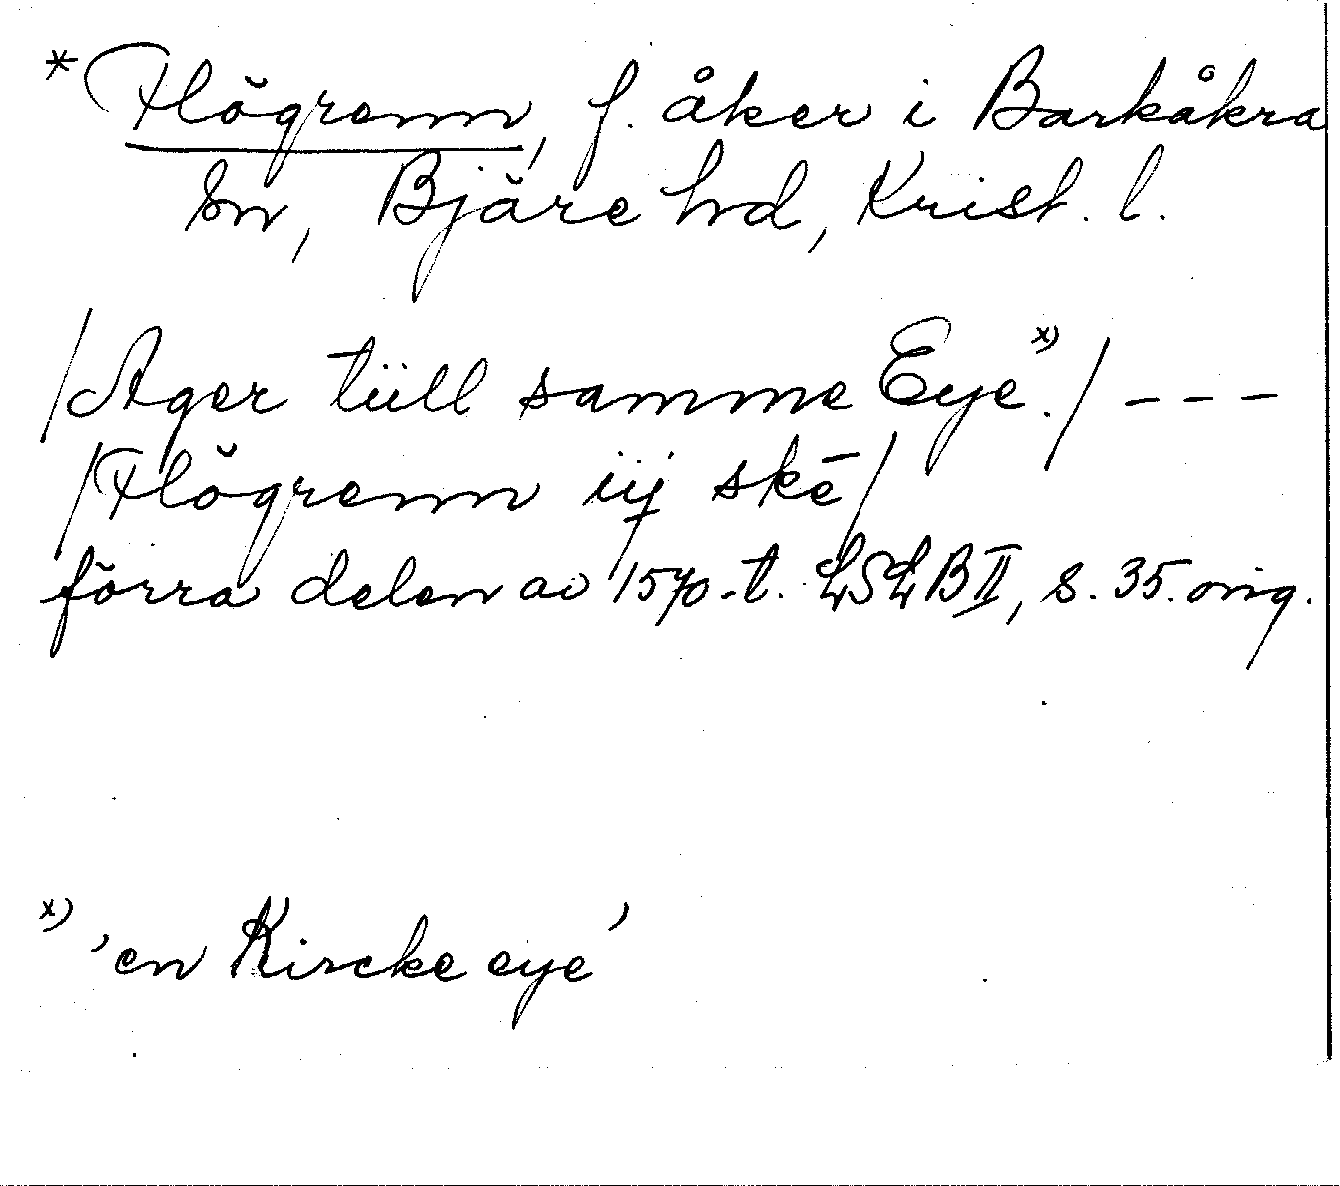 * Flögrenn, f. åker i Barkåkra
sn, Bjäre hd, Krist. l.
/Ager tüll samme Eye.x)/ ---
/Flögrenn iij skē/
förra delen av 1570-t. LSLB II, s. 35. orig.
x) 'en Kircke eye'